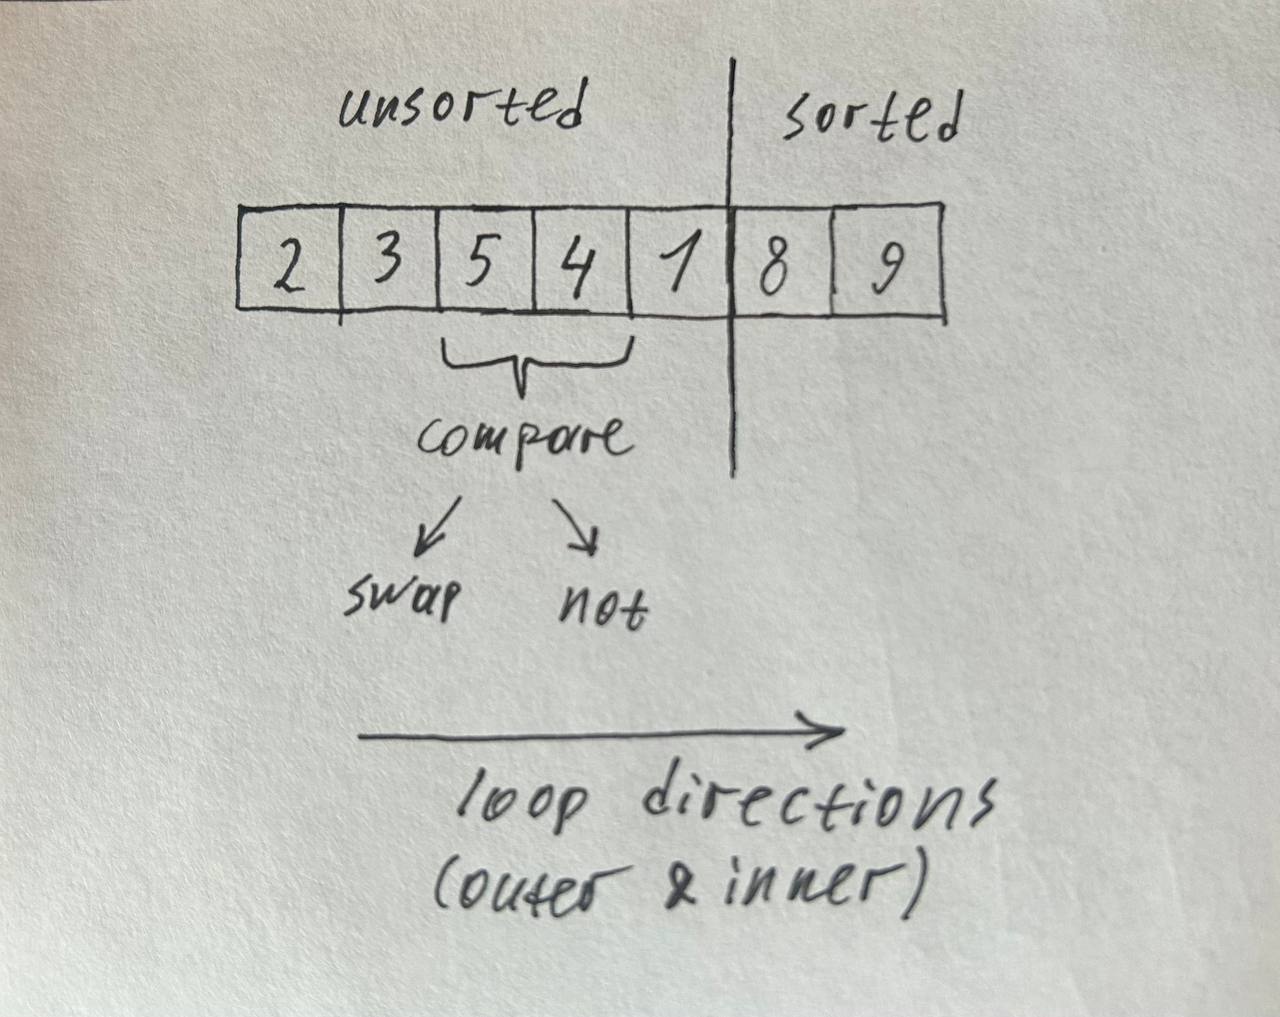 unsorted sorted
2 3 5 4 1 8 9
compare
swap not
loop directions
(outer & inner)